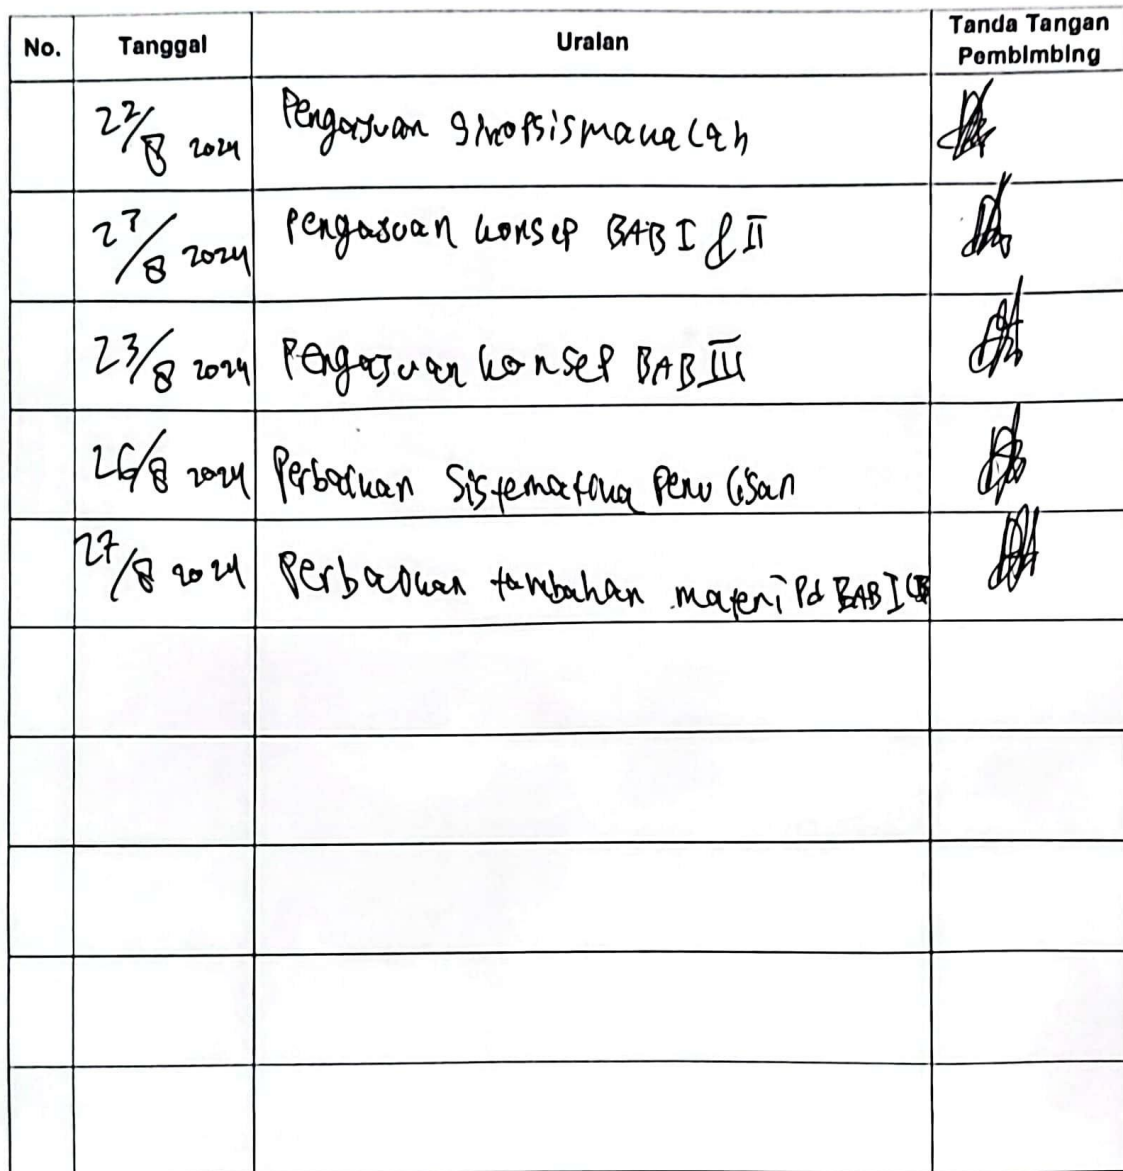 No. Tanggal Uraian Tanda Tangan Pembimbing
22/8 2024 Pengajuan sinopsis makalah
27/8 2024 Pengajuan konsep BAB I & II
23/8 2024 Pengajuan konsep BAB III
26/8 2024 Perbaikan Sistematika Penulisan
27/8 2024 Perbaikan tambahan materi Pd BAB I